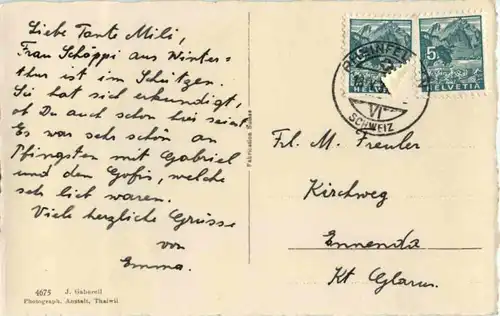 Liebe Tante Mili,
Frau Schöppi aus Winter-
thur ist im Schützen.
Sie hat sich erkundigt,
ob Du auch schon hier seiest.
Es war sehr schön an
Pfingsten mit Gabriel
und den Gofis, welche
seh lieb waren.
Viele herzliche Grüsse
von
Emma.
4675 J. Gaberell
Photograph. Anstalt, Thalwil
Fabrication
RHEINFELDEN
VI
SCHWEIZ
HELVETIA
5
HELVETIA
Frl. M. Freuler
Kirchweg
Ennenda
Kt Glarus.